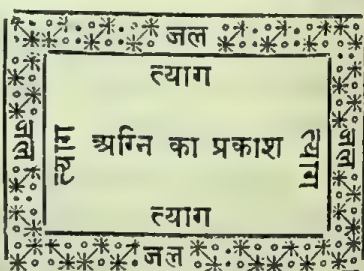 जल
त्याग
जल त्याग अग्नि का प्रकाश त्याग जल
त्याग
जल